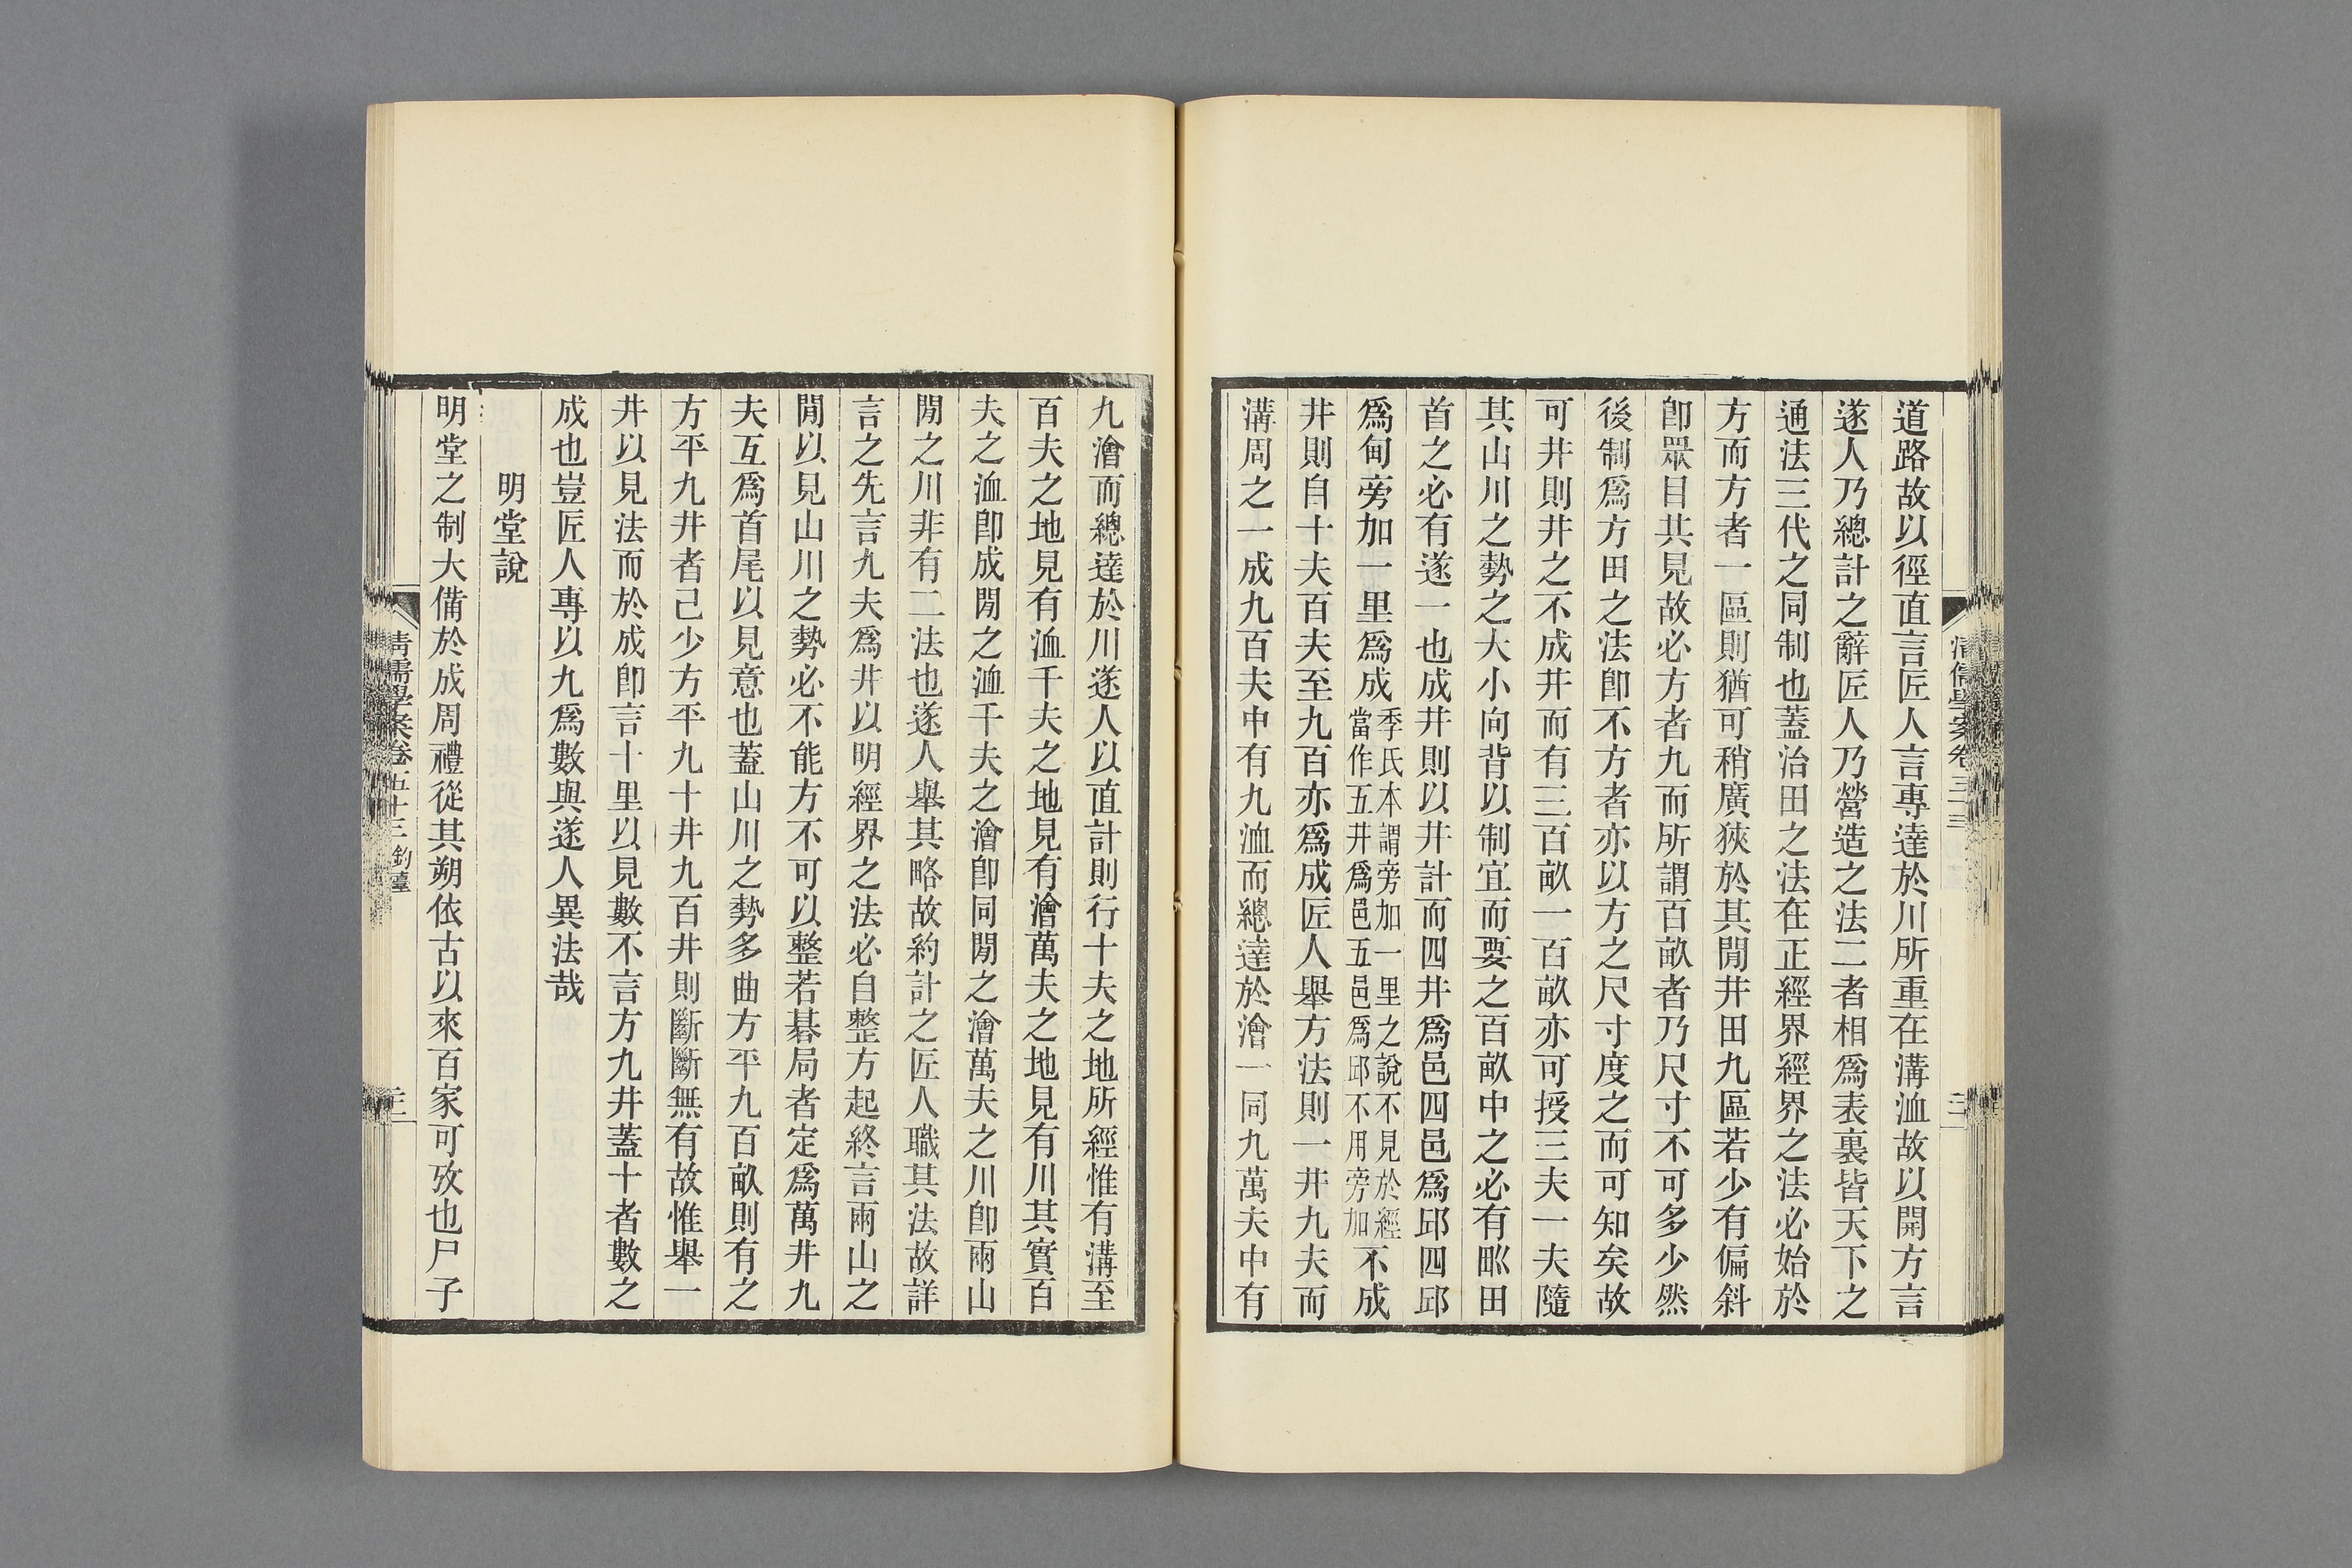 道路故以徑直言匠人言專達於川所重在溝洫故以開方言
遂人乃總計之辭匠人乃營造之法二者相爲表裏皆天下之
通法三代之同制也蓋治田之法在正經界經界之法必始於
方而方者一區則猶可稍廣狹於其閒井田九區若少有偏斜
卽眾目共見故必方者九而所謂百畝者乃尺寸不可多少然
後制爲方田之法卽不方者亦以方之尺寸度之而可知矣故
可井則井之不成井而有三百畝一百畝亦可授三夫一夫隨
其山川之勢之大小向背以制宜而要之百畝中之必有甽田
首之必有遂一也成井則以井計而四井爲邑四邑爲邱四邱
爲甸旁加一里爲成季氏本謂旁加一里之說不見於經當作五井爲邑五邑爲邱不用旁加不成
井則自十夫百夫至九百亦爲成匠人舉方法則一井九夫而
溝周之一成九百夫中有九洫而總達於澮一同九萬夫中有
九澮而總達於川遂人以直計則行十夫之地所經惟有溝至
百夫之地見有洫千夫之地見有澮萬夫之地見有川其實百
夫之洫卽成閒之洫千夫之澮卽同閒之澮萬夫之川卽兩山
閒之川非有二法也遂人舉其略故約計之匠人職其法故詳
言之先言九夫爲井以明經界之法必自整方起終言兩山之
閒以見山川之勢必不能方不可以整若棊局者定爲萬井九
夫互爲首尾以見意也蓋山川之勢多曲方平九百畝則有之
方平九井者己少方平九十井九百井則斷斷無有故惟舉一
井以見法而於成卽言十里以見數不言方九井蓋十者數之
成也豈匠人專以九爲數與遂人異法哉
明堂說
明堂之制大備於成周禮從其朔依古以來百家可攷也尸子
清儒學案卷五十三 釣臺